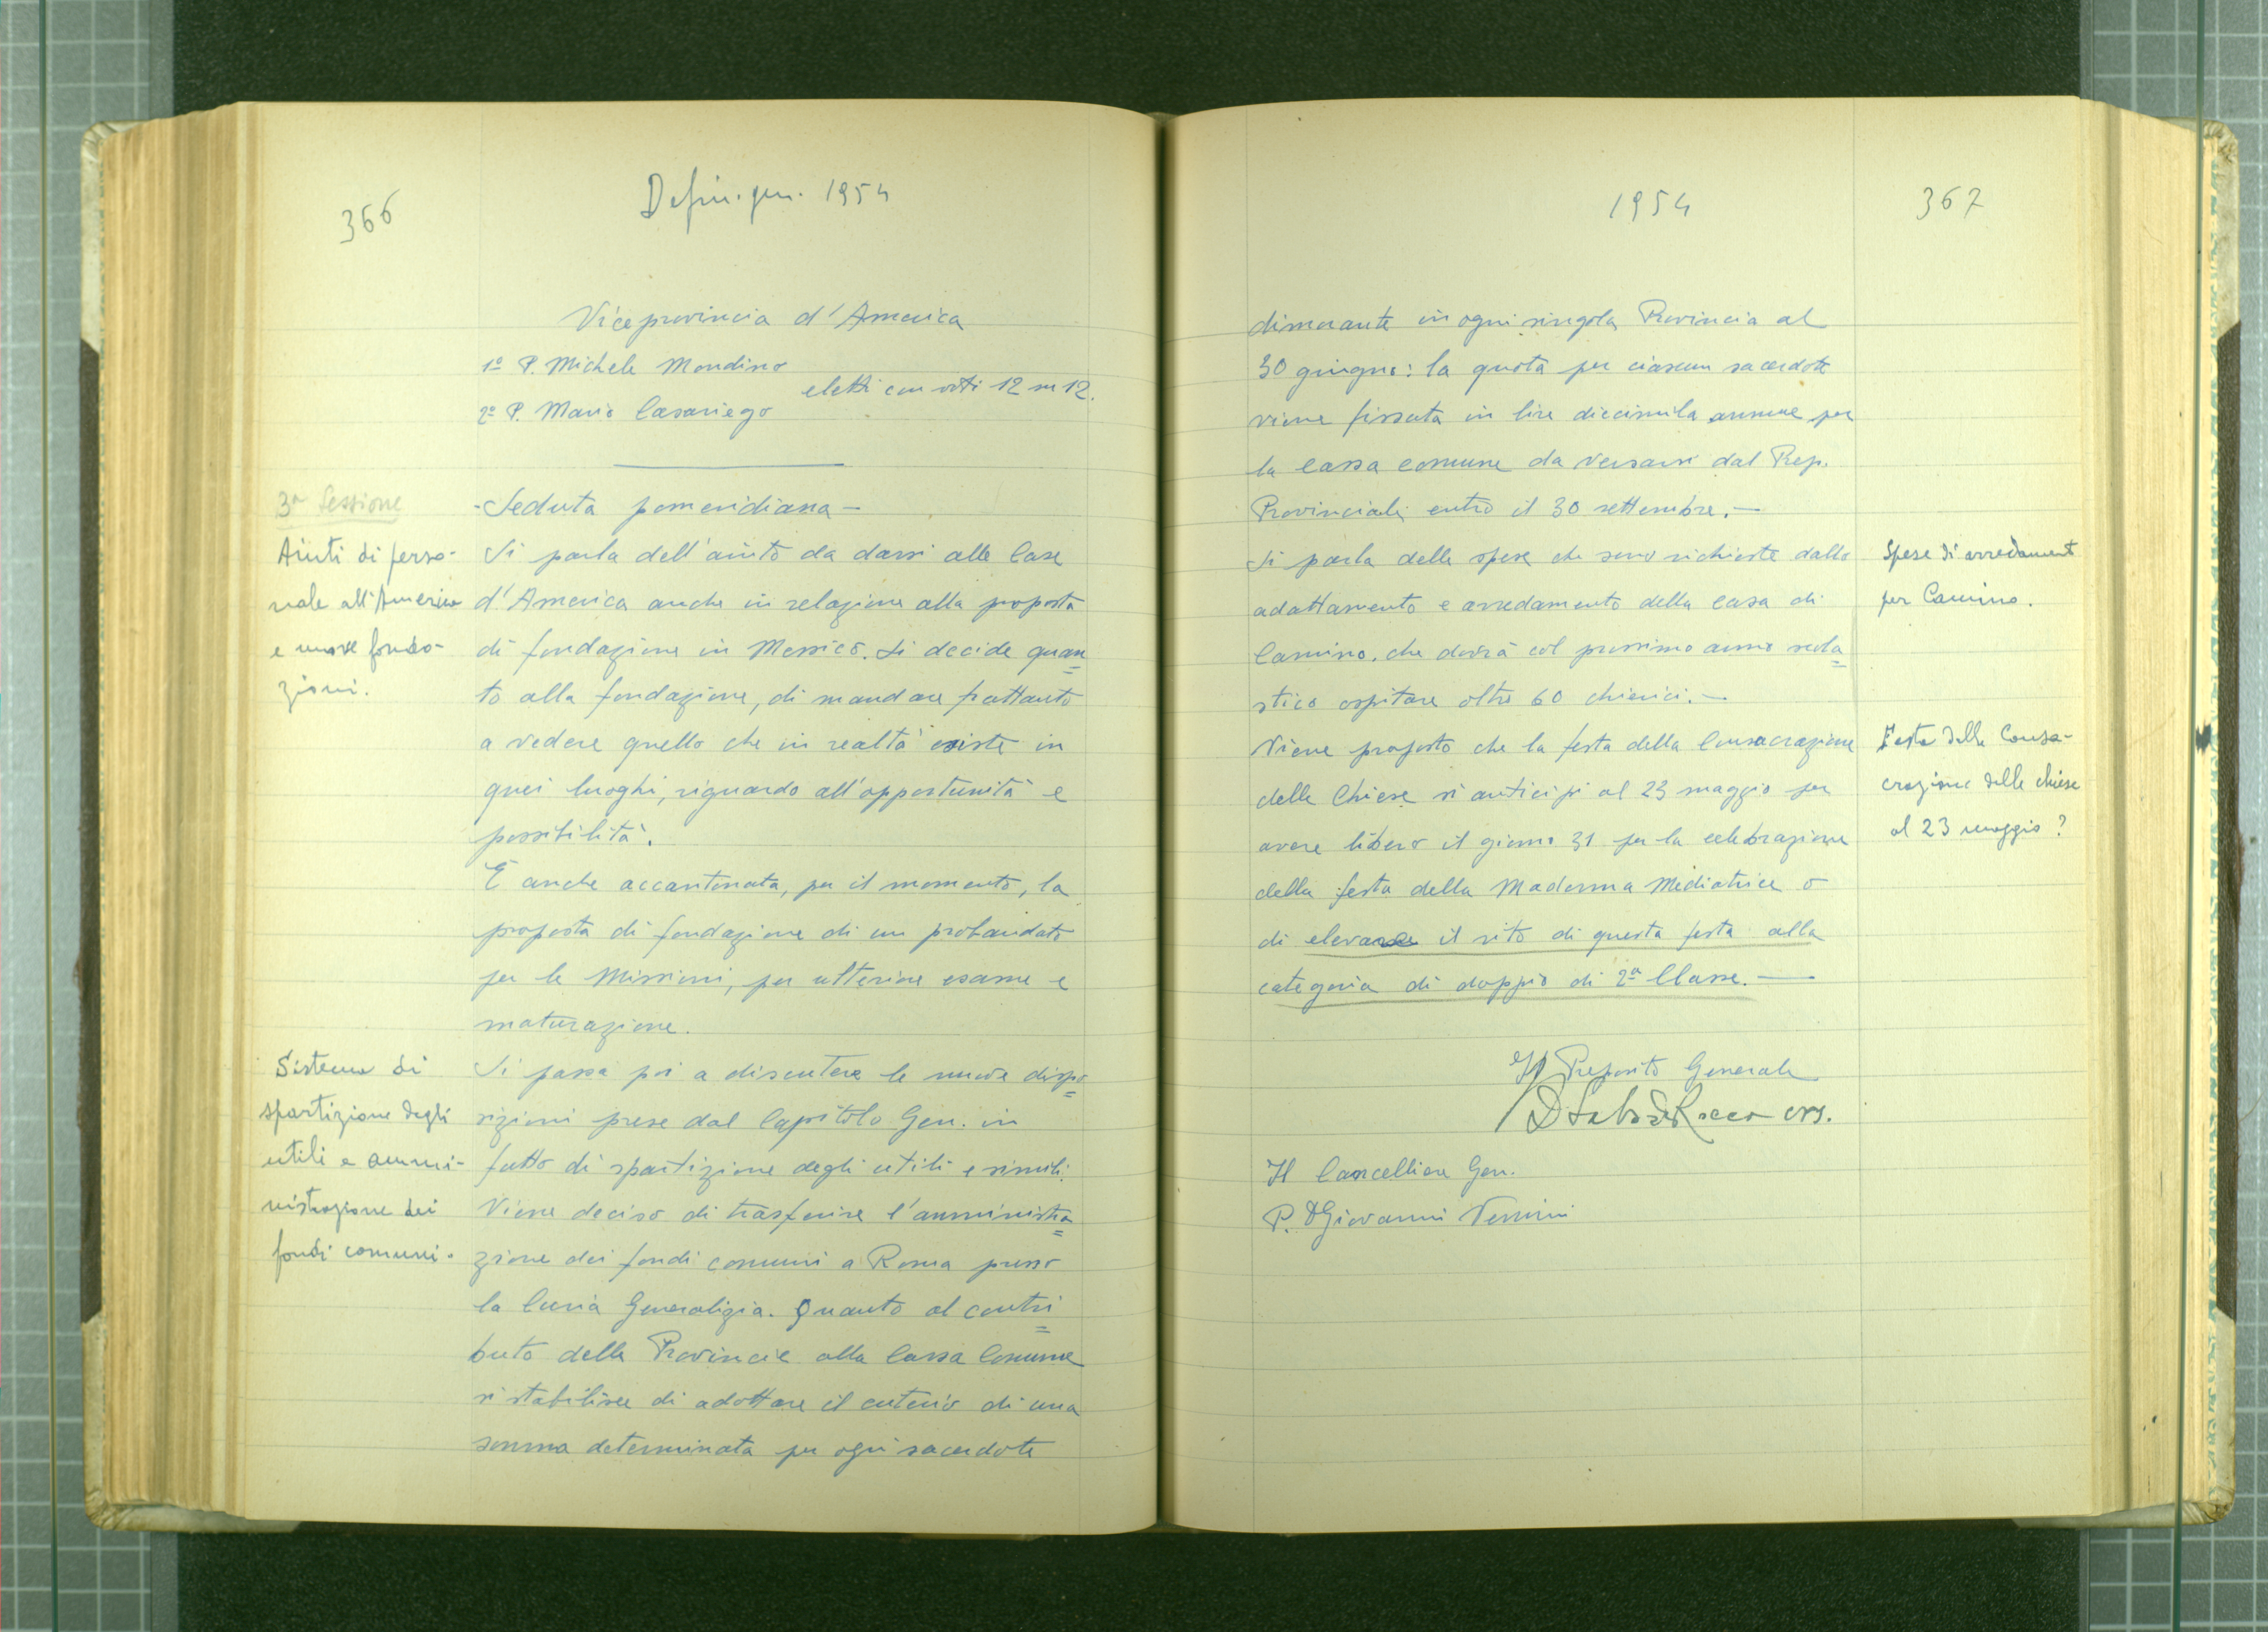 366
Defin. gen. 1954
Viceprovincia d'America
1º P. Michele Mondino
eletti con voti 12 su 12.
2º P. Mario Casariego
3ª Sessione
- Seduta pomeridiana -
Aiuti di perso-
nale all'America
e nuove fonda-
zioni.
Si parla dell'aiuto da darsi alle Case
d'America anche in relazione alla proposta
di fondazione in Messico. Si decide quan=
to alla fondazione, di mandare frattanto
a vedere quello che in realtà esiste in
quei luoghi, riguardo all'opportunità e
possibilità.
È anche accantonata, per il momento, la
proposta di fondazione di un probandato
per le Missioni, per ulteriore esame e
maturazione.
Sistema di
spartizione degli
utili e ammi-
nistrazione dei
fondi comuni.
Si passa poi a discutere le nuove dispo=
sizioni prese dal Capitolo Gen. in
fatto di spartizione degli utili e simili.
Viene deciso di trasferire l'amministra=
zione dei fondi comuni a Roma presso
la Curia Generalizia. Quanto al contri=
buto delle Provincie alla Cassa Comune
si stabilisce di adottare il criterio di una
somma determinata per ogni sacerdote
1954
367
dimorante in ogni singola Provincia al
30 giugno: la quota per ciascun sacerdote
viene fissata in lire diecimila annue per
la cassa comune da versarsi dal Prep.
Provinciale entro il 30 settembre. -
Si parla delle spese che sono richieste dallo
adattamento e arredamento della casa di
Camino, che dovrà col prossimo anno scola=
stico ospitare oltre 60 chierici. -
Spese di arredament
per Camino.
Viene proposto che la festa della Consacrazione
delle Chiese si anticipi al 23 maggio per
avere libero il giorno 31 per la celebrazione
della festa della Madonna Mediatrice o
di elevare il rito di questa festa alla
categoria di doppio di 2ª Classe. -
Festa delle Consa-
crazione delle chiese
al 23 maggio?
Il Preposito Generale
D Saba De Rocco crs.
Il Cancelliere Gen.
P. D Giovanni Venini